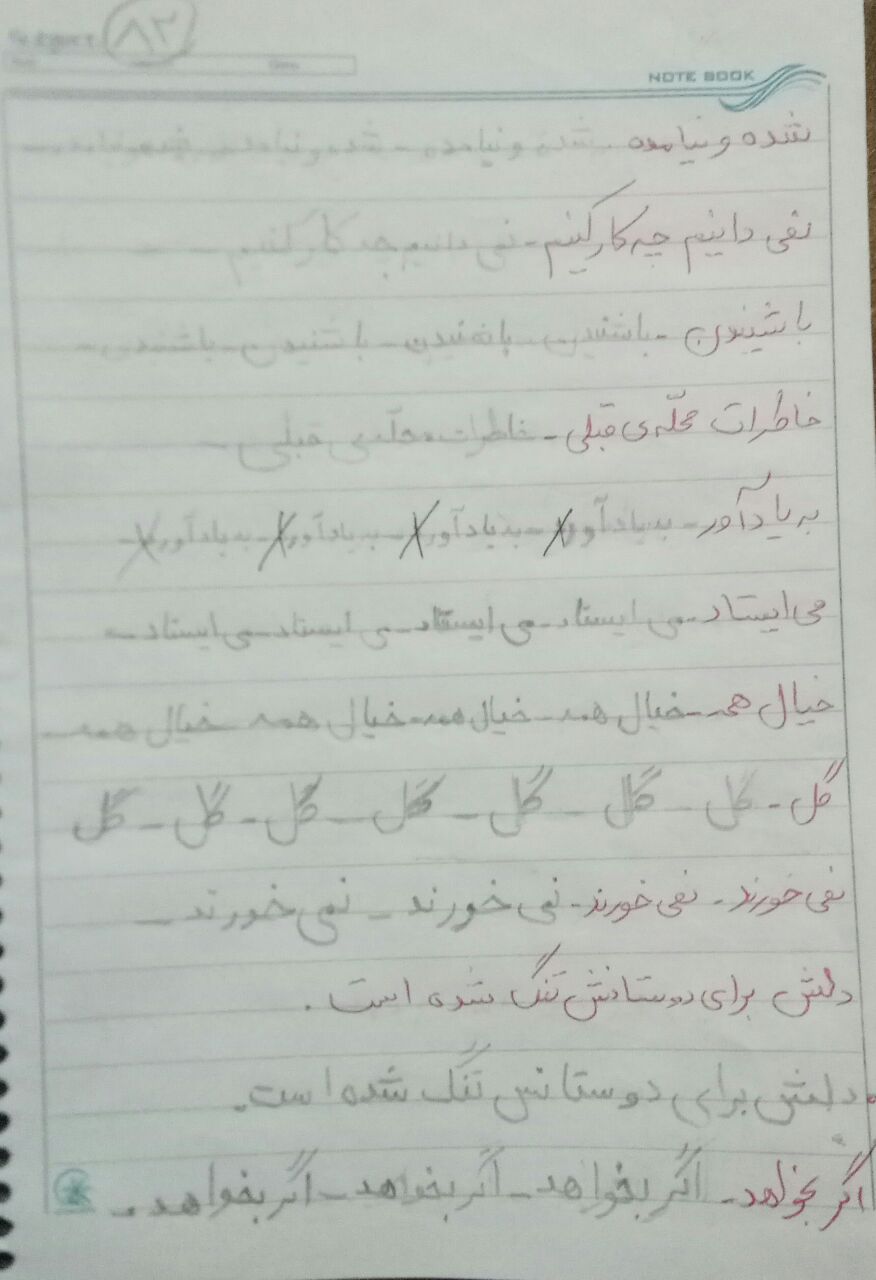 ۸۲
NOTE BOOK
نشده و نیامده - نشده و نیامده - نشده و نیامده -
نمی دانیم چه کار کنیم - نمی دانیم چه کار کنیم -
با شنیدن - با شنیدن - با شنیدن - با شنیدن - با شنیدن -
خاطرات محلّه ی قبلی - خاطرات محلّه ی قبلی -
به یاد آور - به یاد آور - به یاد آور - به یاد آور - به یاد آور -
می ایستاد - می ایستاد - می ایستاد - می ایستاد - می ایستاد -
خیال همه - خیال همه - خیال همه - خیال همه - خیال همه -
گل - گل - گل - گل - گل - گل - گل - گل
نمی خورند - نمی خورند - نمی خورند - نمی خورند -
دلش برای دوستانش تنگ شده است .
دلش برای دوستانس تنگ شده است .
اگر بخواهد - اگر بخواهد - اگر بخواهد - اگر بخواهد .